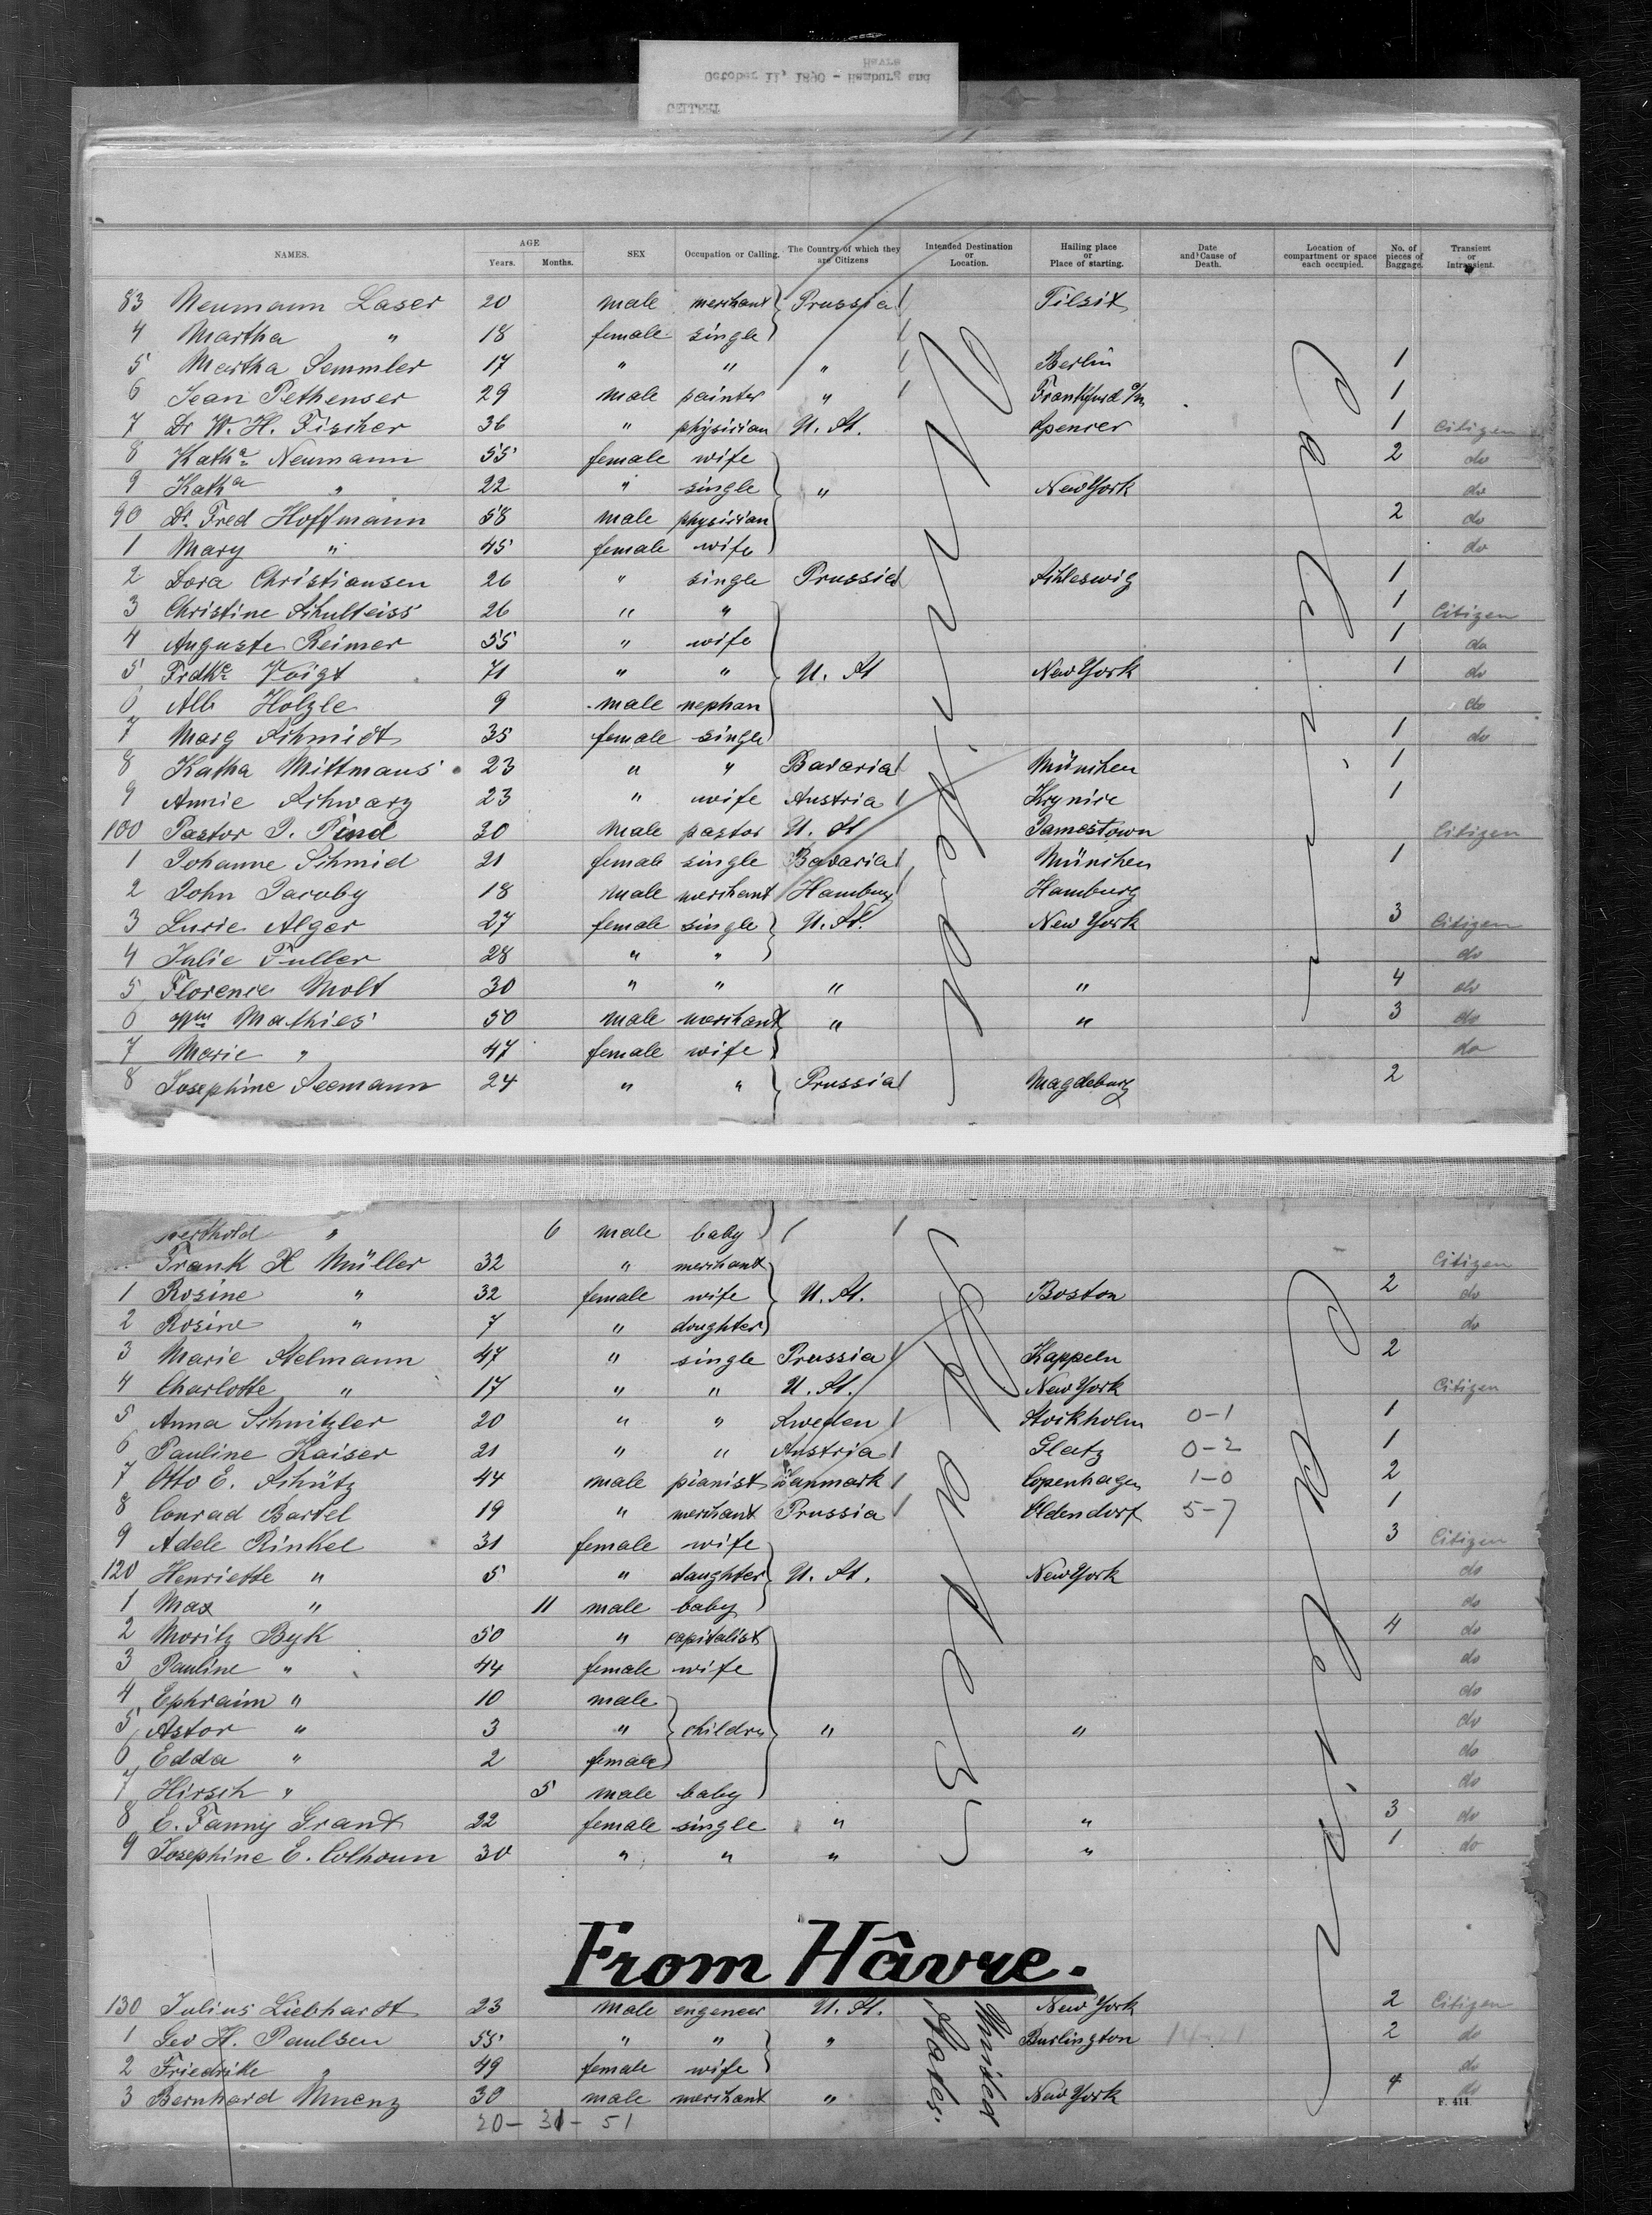 October 11, 1890 - Hamburg and
Havre
NAMES. AGE Years. Months. SEX Occupation or Calling. The Country of which they are Citizens Intended Destination or Location. Hailing place or Place of starting. Date and Cause of Death. Location of compartment or space each occupied. No. of pieces of Baggage. Transient or Intransient.
83 Neumann Laser 20 male merchant Prussia Tilsit
4 Martha " 18 female single
5 Martha Semmler 17 " " " Berlin 1
6 Jean Pethenser 29 male painter " Frankfurd a/m 1
7 Dr W. H. Fischer 36 " physician U. St. Spencer 1 Citizen
8 Katha Neumann 55 female wife 2 do
9 Katha " 22 " single " New York do
90 Dr. Fred Hoffmann 58 male physician 2 do
1 Mary " 45 female wife do
2 Dora Christiansen 26 " single Prussia Schleswig 1
3 Christine Schulteiss 26 " " 1 Citizen
4 Auguste Reimer 55 " wife 1 do
5 Frdke Voigt 71 " " U. St New York 1 do
6 Alb Holzle 9 male nephan do
7 Marg Schmidt 35 female single 1 do
8 Katha Mittmans 23 " " Bavaria München 1
9 Annie Schwarz 23 " wife Austria Krynice 1
100 Pastor J. Pind 30 male pastor U. St Jamestown Citizen
1 Johanne Schmid 21 female single Bavaria München 1
2 John Jacoby 18 male merchant Hamburg Hamburg
3 Lucie Alger 27 female single U. St. New York 3 Citizen
4 Julie Fuller 28 " " do
5 Florence Molt 30 " " " " 4 do
6 Wm Mathies 50 male merchant " " 3 do
7 Marie " 47 female wife do
8 Josephine Seemann 24 " " Prussia Magdeburg 2
Berthold " 6 male baby
Frank H Müller 32 " merchant Citizen
1 Rosine " 32 female wife U. St. Boston 2 do
2 Rosine " 7 " daughter do
3 Marie Stelmann 47 " single Prussia Kappeln 2
4 Charlotte " 17 " " U. St. New York Citizen
5 Anna Schnitzler 20 " " Sweden Stockholm 0-1 1
6 Pauline Kaiser 21 " " Austria Glatz 0-2 1
7 Otto E. Schütz 44 male pianist Danmark Copenhagen 1-0 2
8 Conrad Bartel 19 " merchant Prussia Oldendorf 5-7 1
9 Adele Rinkel 31 female wife 3 Citizen
120 Henriette " 5 " daughter U. St. New York do
1 Max " 11 male baby do
2 Moritz Byk 50 " capitalist 4 do
3 Pauline " 44 female wife do
4 Ephraim " 10 male do
5 Astor " 3 " children " " do
6 Edda " 2 female do
7 Hirsch " 5 male baby do
8 C. Fanny Grant 22 female single " " 3 do
9 Josephine E. Colhoun 30 " " " " 1 do
From Hâvre.
130 Julius Liebhardt 23 male engeneer U. St. United States. New York 2 Citizen
1 Geo H. Paulsen 55 " " " Burlington 2 do
2 Friedrike " 49 female wife do
3 Bernhard Muenz 30 male merchant " New York 4 do
F. 414.
20 - 31 - 51